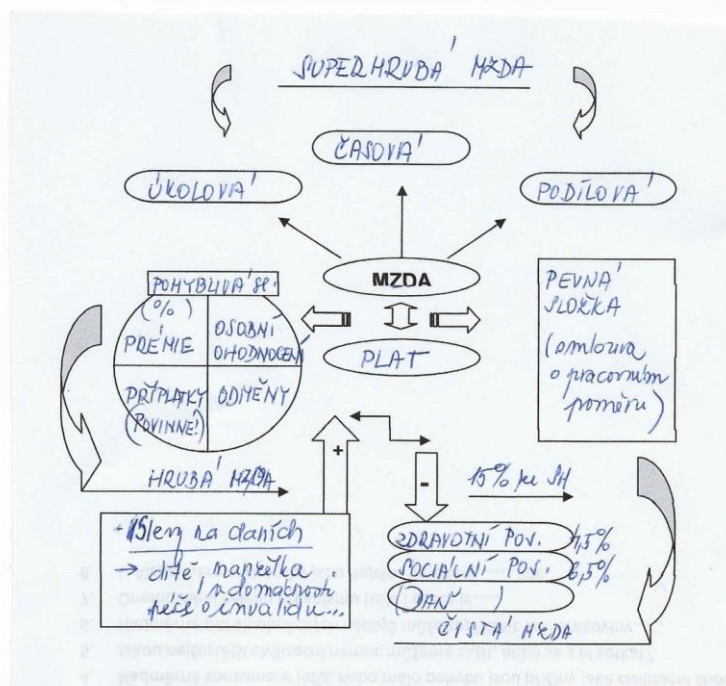 SUPERHRUBÁ MZDA
ČASOVÁ
ÚKOLOVÁ
PODÍLOVÁ
MZDA
PLAT
POHYBLIVÁ SL.
(%)
PRÉMIE
OSOBNÍ
OHODNOCENÍ
PŘÍPLATKY
(POVINNÉ!)
ODMĚNY
PEVNÁ
SLOŽKA
(smlouva
o pracovním
poměru)
HRUBÁ MZDA
+
-
15% ze SH
+ Slevy na daních
→ dítě, manželka
v domácnosti
péče o invalidu...
ZDRAVOTNÍ POJ. 4,5%
SOCIÁLNÍ POJ. 6,5%
(DAŇ)
ČISTÁ MZDA